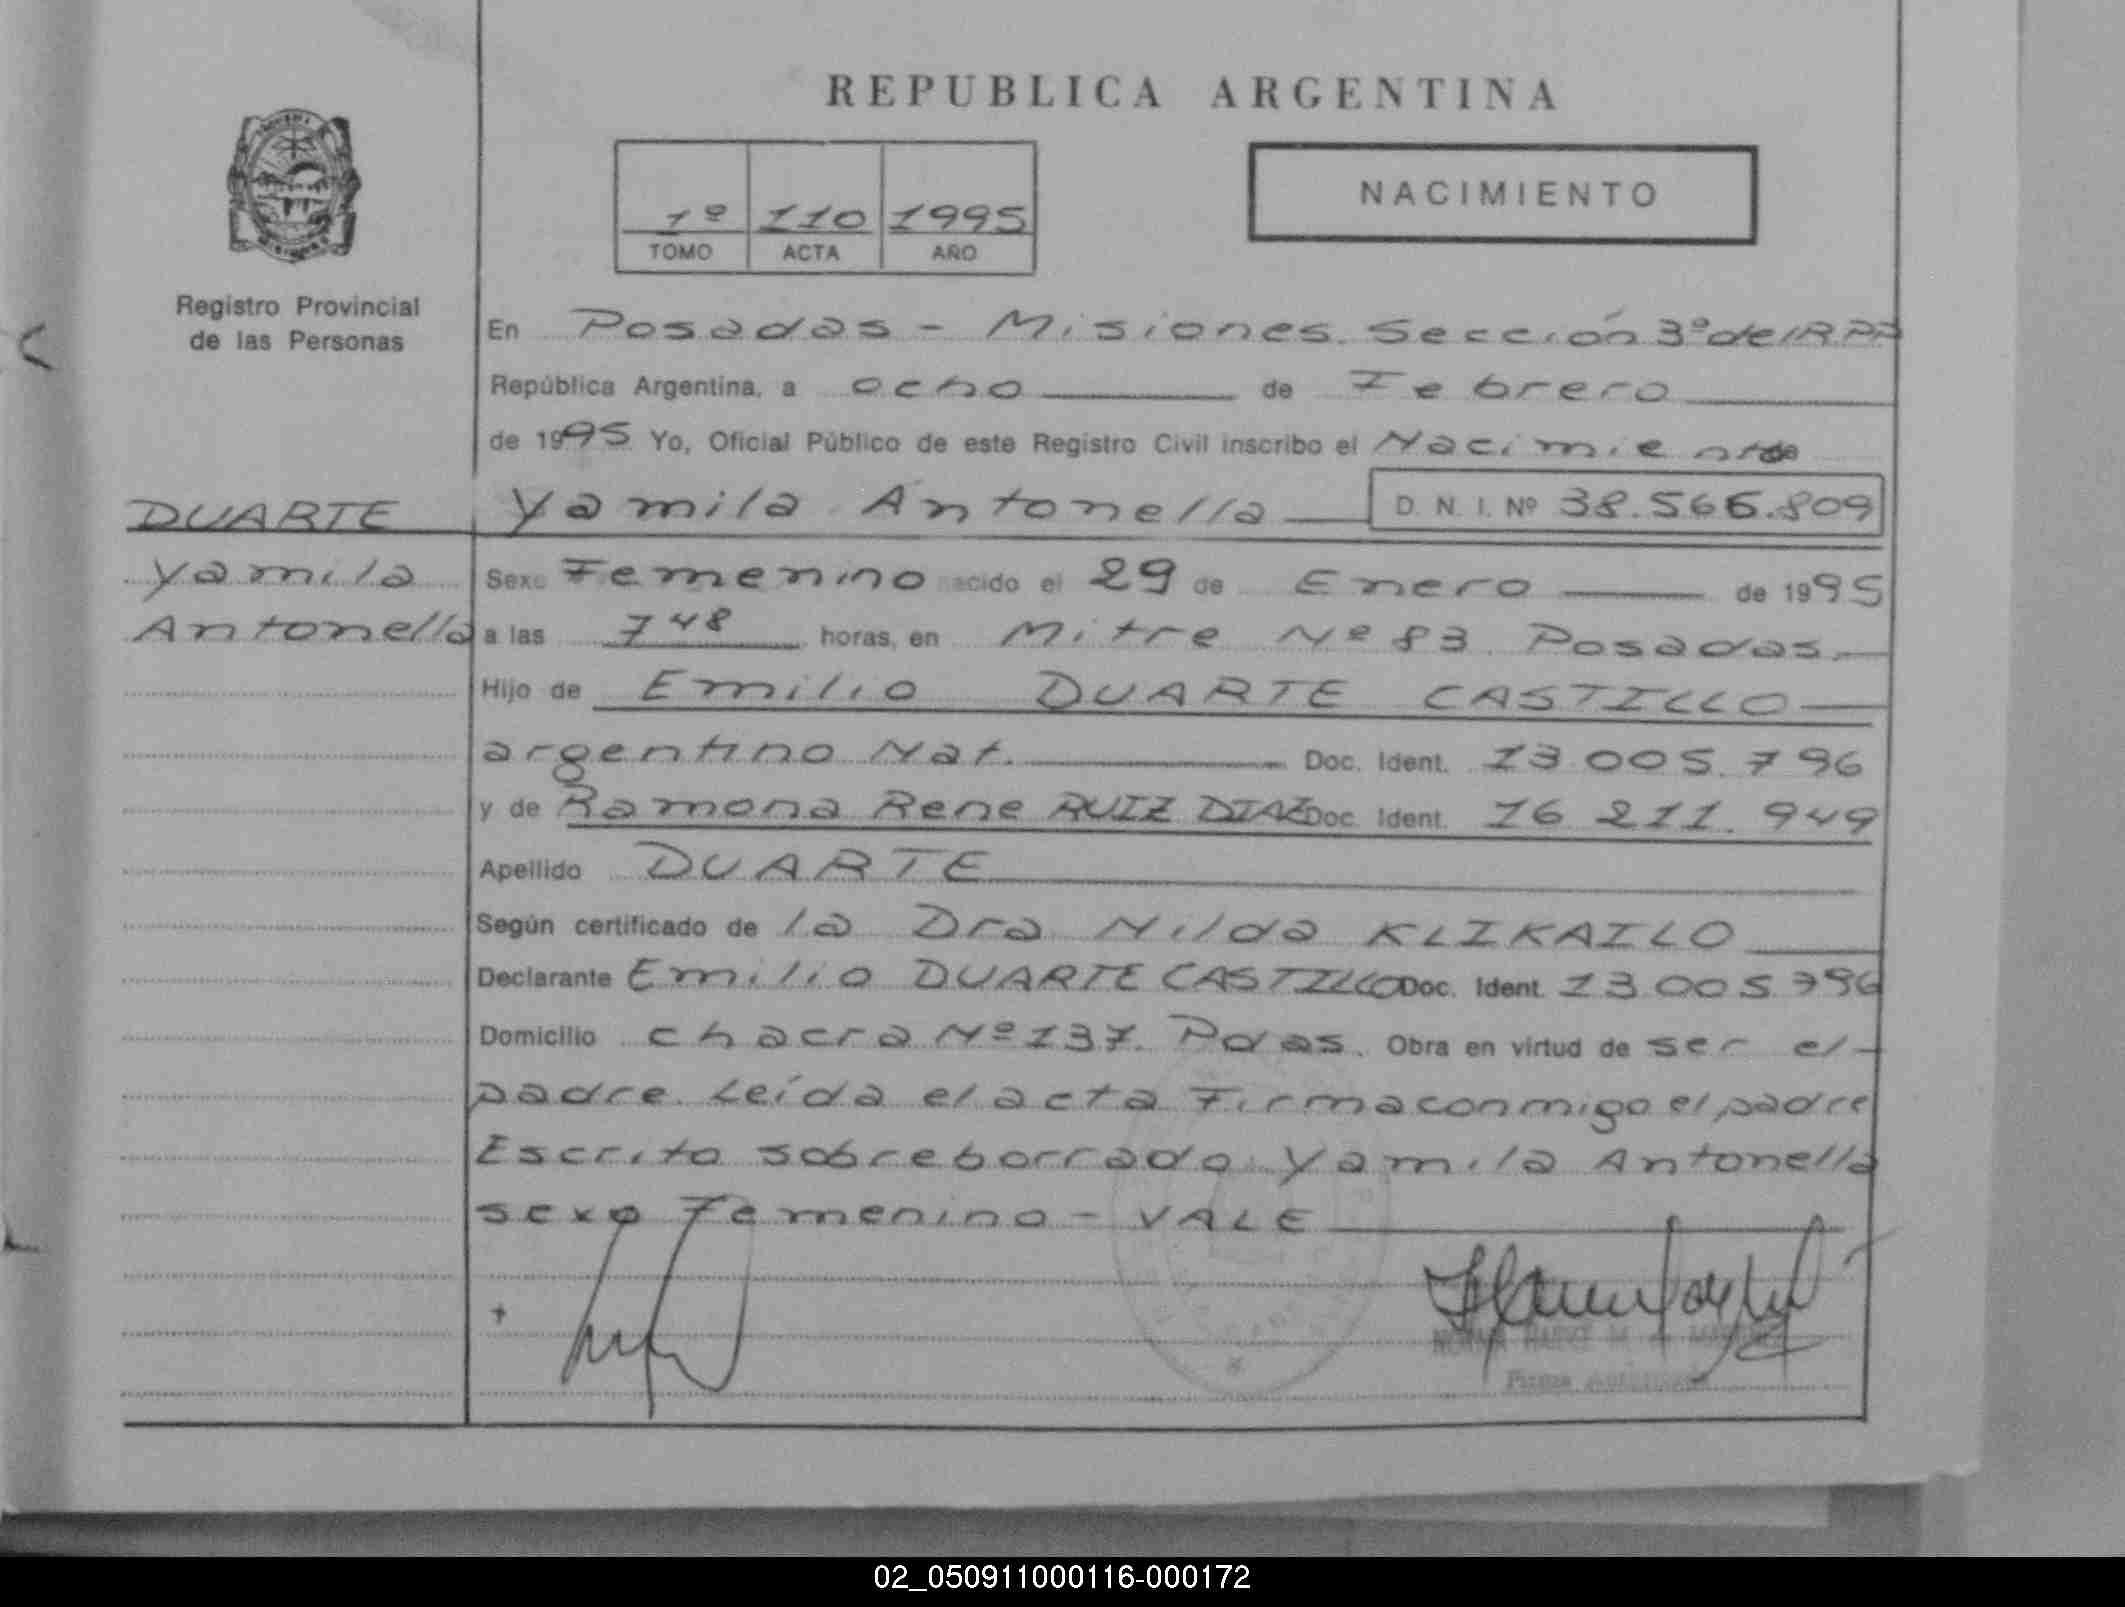 REPUBLICA ARGENTINA
NACIMIENTO
1º 110 1995
TOMO ACTA AÑO
Registro Provincial
de las Personas
En Posadas - Misiones. Sección 3º del RPP
República Argentina, a ocho de Febrero
de 1995 Yo, Oficial Público de este Registro Civil inscribo el Nacimiento de
DUARTE Yamila Antonella D. N. I. Nº 38.566.809
Yamila
Antonella
Sexo Femenino nacido el 29 de Enero de 1995
a las 7 48 horas, en Mitre Nº 83 Posadas.
Hijo de Emilio DUARTE CASTILLO
argentino Nat. Doc. Ident. 13.005.796
y de Ramona Rene RUIZ DIAZ Doc. Ident. 16.211.949
Apellido DUARTE
Según certificado de la Dra Nilda KLIKAILO
Declarante Emilio DUARTE CASTILLO Doc. Ident. 13.005.796
Domicilio chacra Nº 137. Pdas. Obra en virtud de ser el
padre. Leída el acta Firma conmigo el padre
Escrito sobreborrado: Yamila Antonella
sexo Femenino - VALE
02_050911000116-000172